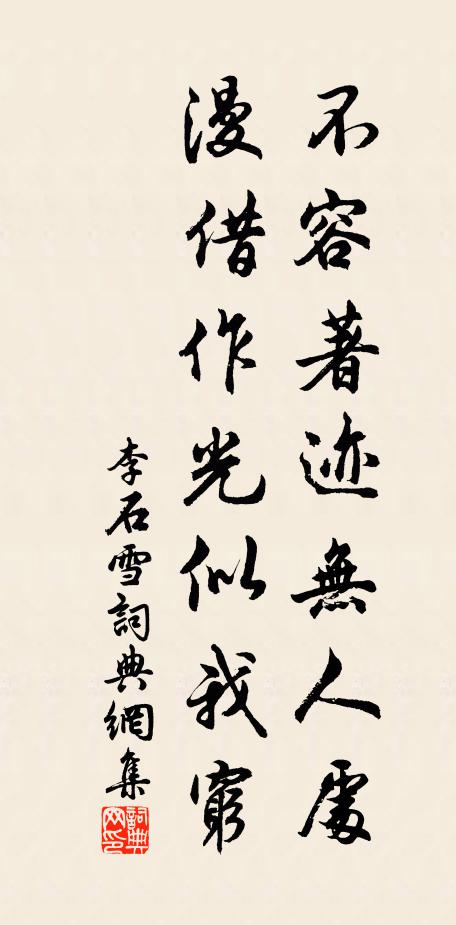 不容著迹無人處
漫借作光似我窮
李石雪詞典網集
詞典
网印